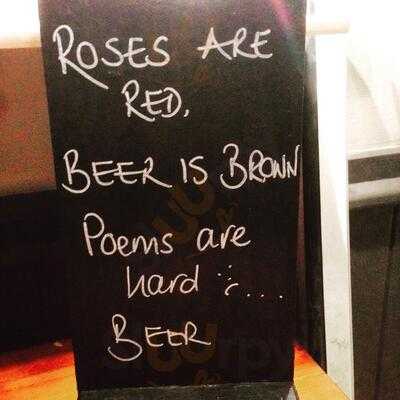 ROSES ARE
RED,
BEER IS BROWN
Poems are
hard :(...
BEER